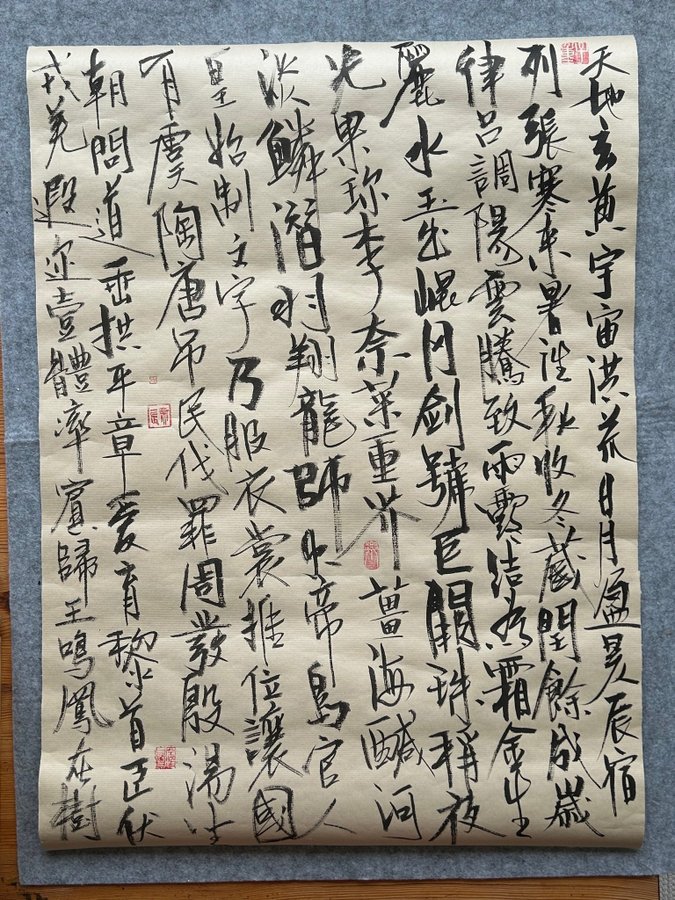 天地玄黃宇宙洪荒日月盈昃辰宿
列張寒來暑往秋收冬藏閏餘成歲
律呂調陽雲騰致雨露結為霜金生
麗水玉出崐冈劍號巨闕珠稱夜
光果珍李奈菜重芥薑海醎河
淡鱗潛羽翔龍師火帝鳥官人
皇始制文字乃服衣裳推位讓國
有虞陶唐吊民伐罪周發殷湯坐
朝問道垂拱平章愛育黎首臣伏
戎羌遐迩壹體率賓歸王鳴鳳在樹